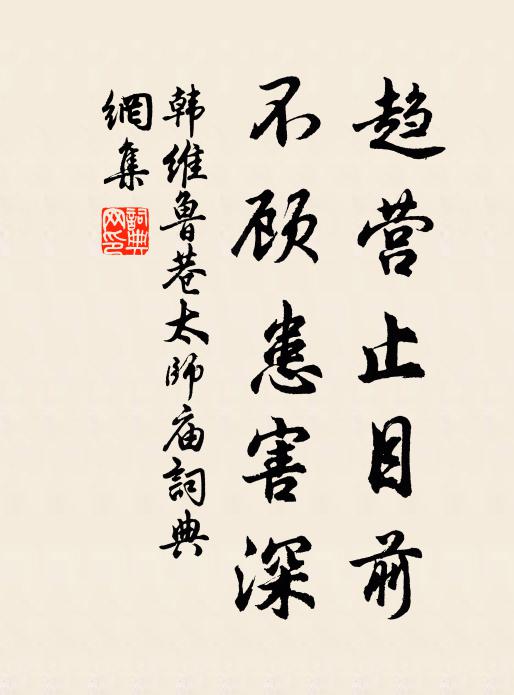 趋营止目前
不顾患害深
韩维鲁巷太师庙詞典
網集
詞典網印